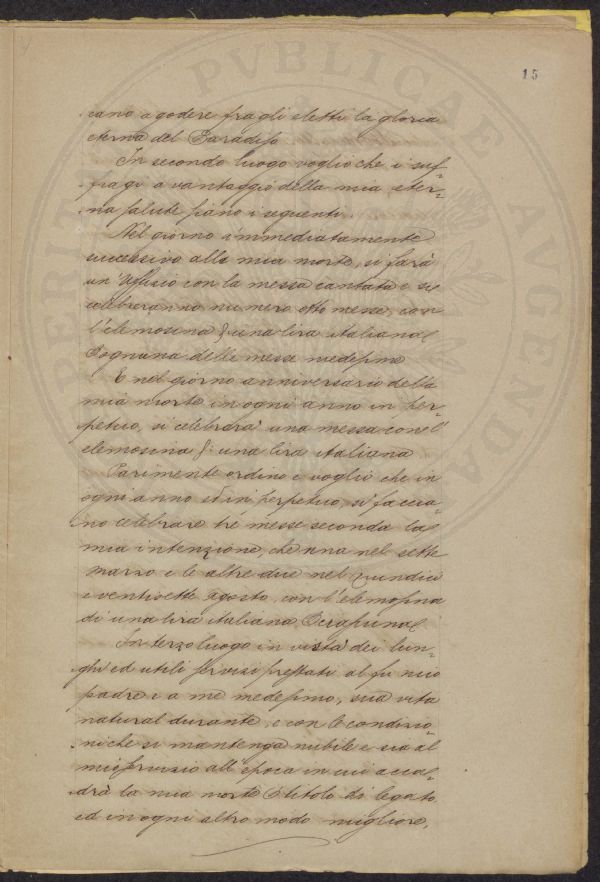 PERITIA PVBLICAE AVGENDAE
15
cano a godere fra gli eletti la gloria
eterna del Paradiso
In secondo luogo voglio che i suf=
fragi a vantaggio della mia eter=
na salute siano i seguenti.
Nel giorno immediatamente
successivo alla mia morte, si farà
un'Uffizio con la messa cantata e si
celebreranno numero otto messe, con
l'elemosina di una lira italiana
p ognuna delle messe medesime
E nel giorno anniversario della
mia morte in ogni anno in per=
petuo, si celebrerà una messa con l'
elemosina di una lira italiana
Parimente ordino e voglio che in
ogni anno ed in perpetuo, si faccia=
no celebrare tré messe seconda la
mia intenzione, che una nel sette
Marzo e le altre due nel quindici
e ventisette Agosto, con l'elemosina
di una lira italiana p ciascuna
In terzo luogo in vista dei lun=
ghi ed utili servizi prestati al fu mio
padre e a me medesimo, sua vita
natural durante, e con le condizio=
ni che si mantenga nubile e sia al
mio servizio all'epoca in cui acca=
drà la mia morte a titolo di legato,
ed in ogni altro modo migliore,